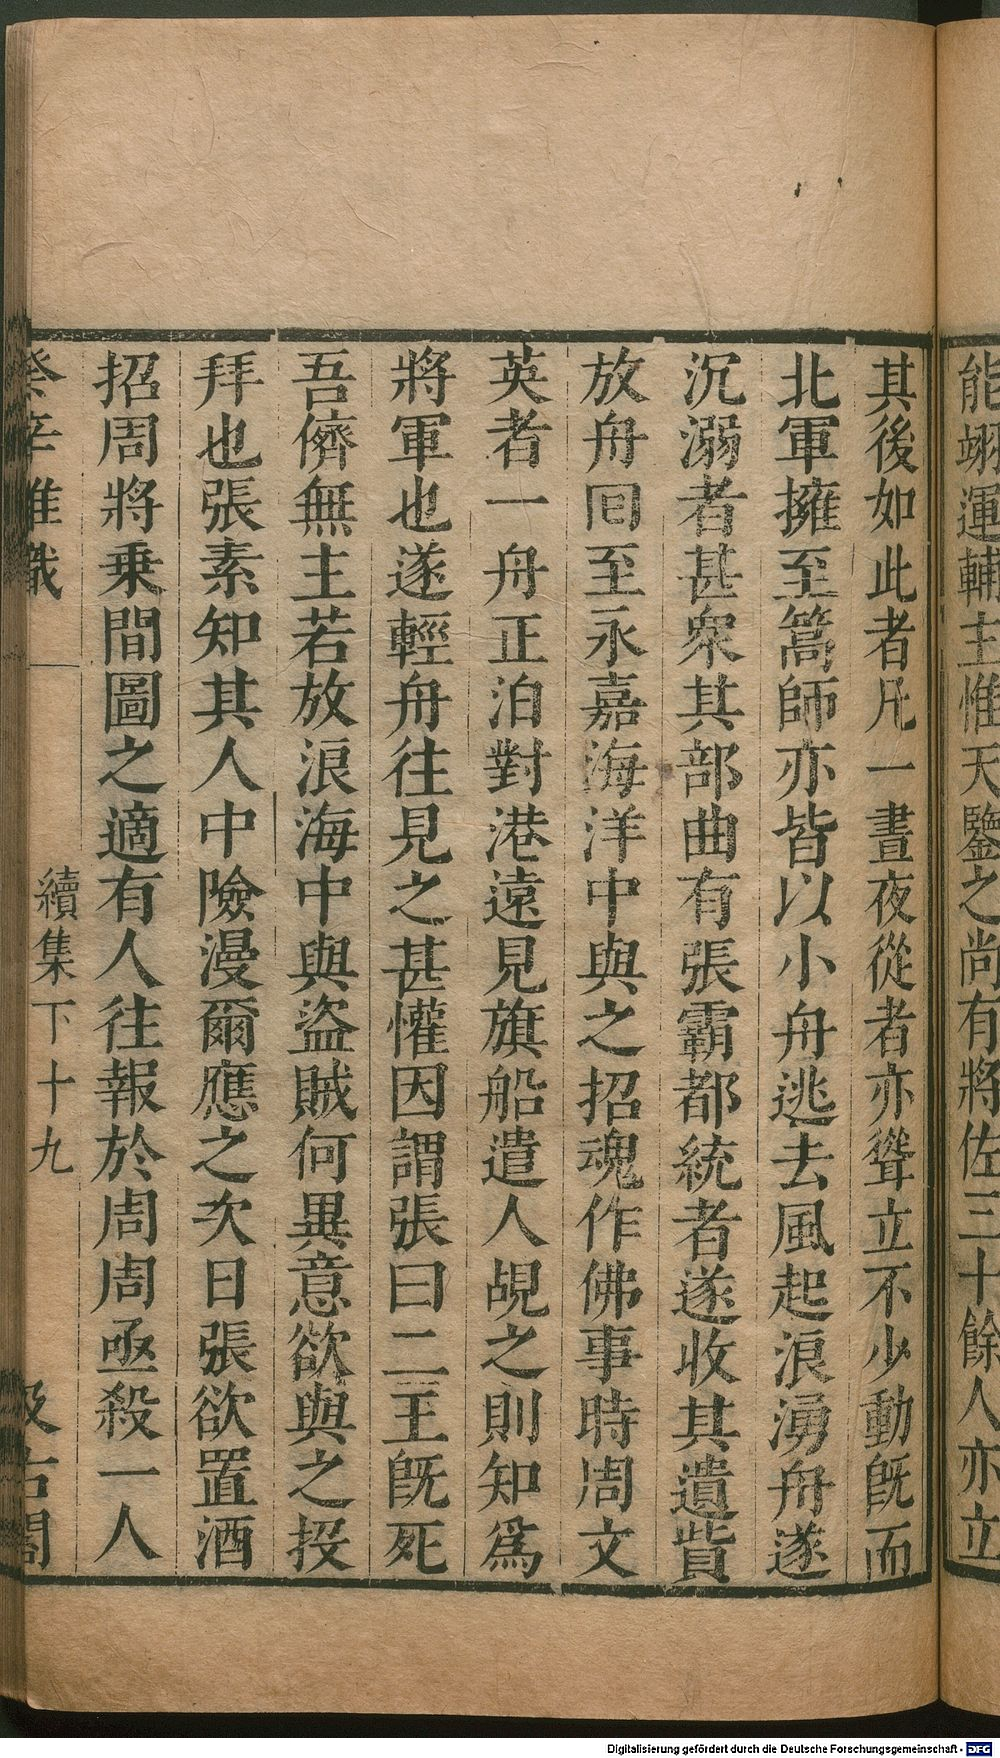 能翊運輔主惟天鑒之尚有將佐三十餘人亦立
其後如此者凡一晝夜從者亦聳立不少動旣而
北軍擁至篙師亦皆以小舟逃去風起浪湧舟遂
沉溺者甚衆其部曲有張霸都統者遂收其遺貲
放舟囘至永嘉海洋中與之招魂作佛事時周文
英者一舟正泊對港遠見旗船遣人覘之則知爲
將軍也遂輕舟往見之甚懽因謂張曰二王旣死
吾儕無主若放浪海中與盜賊何異意欲與之投
拜也張素知其人中險漫爾應之次日張欲置酒
招周將乗間圖之適有人往報於周周亟殺一人
癸辛雜識
續集下十九
汲古閣
Digitalisierung gefördert durch die Deutsche Forschungsgemeinschaft - DFG